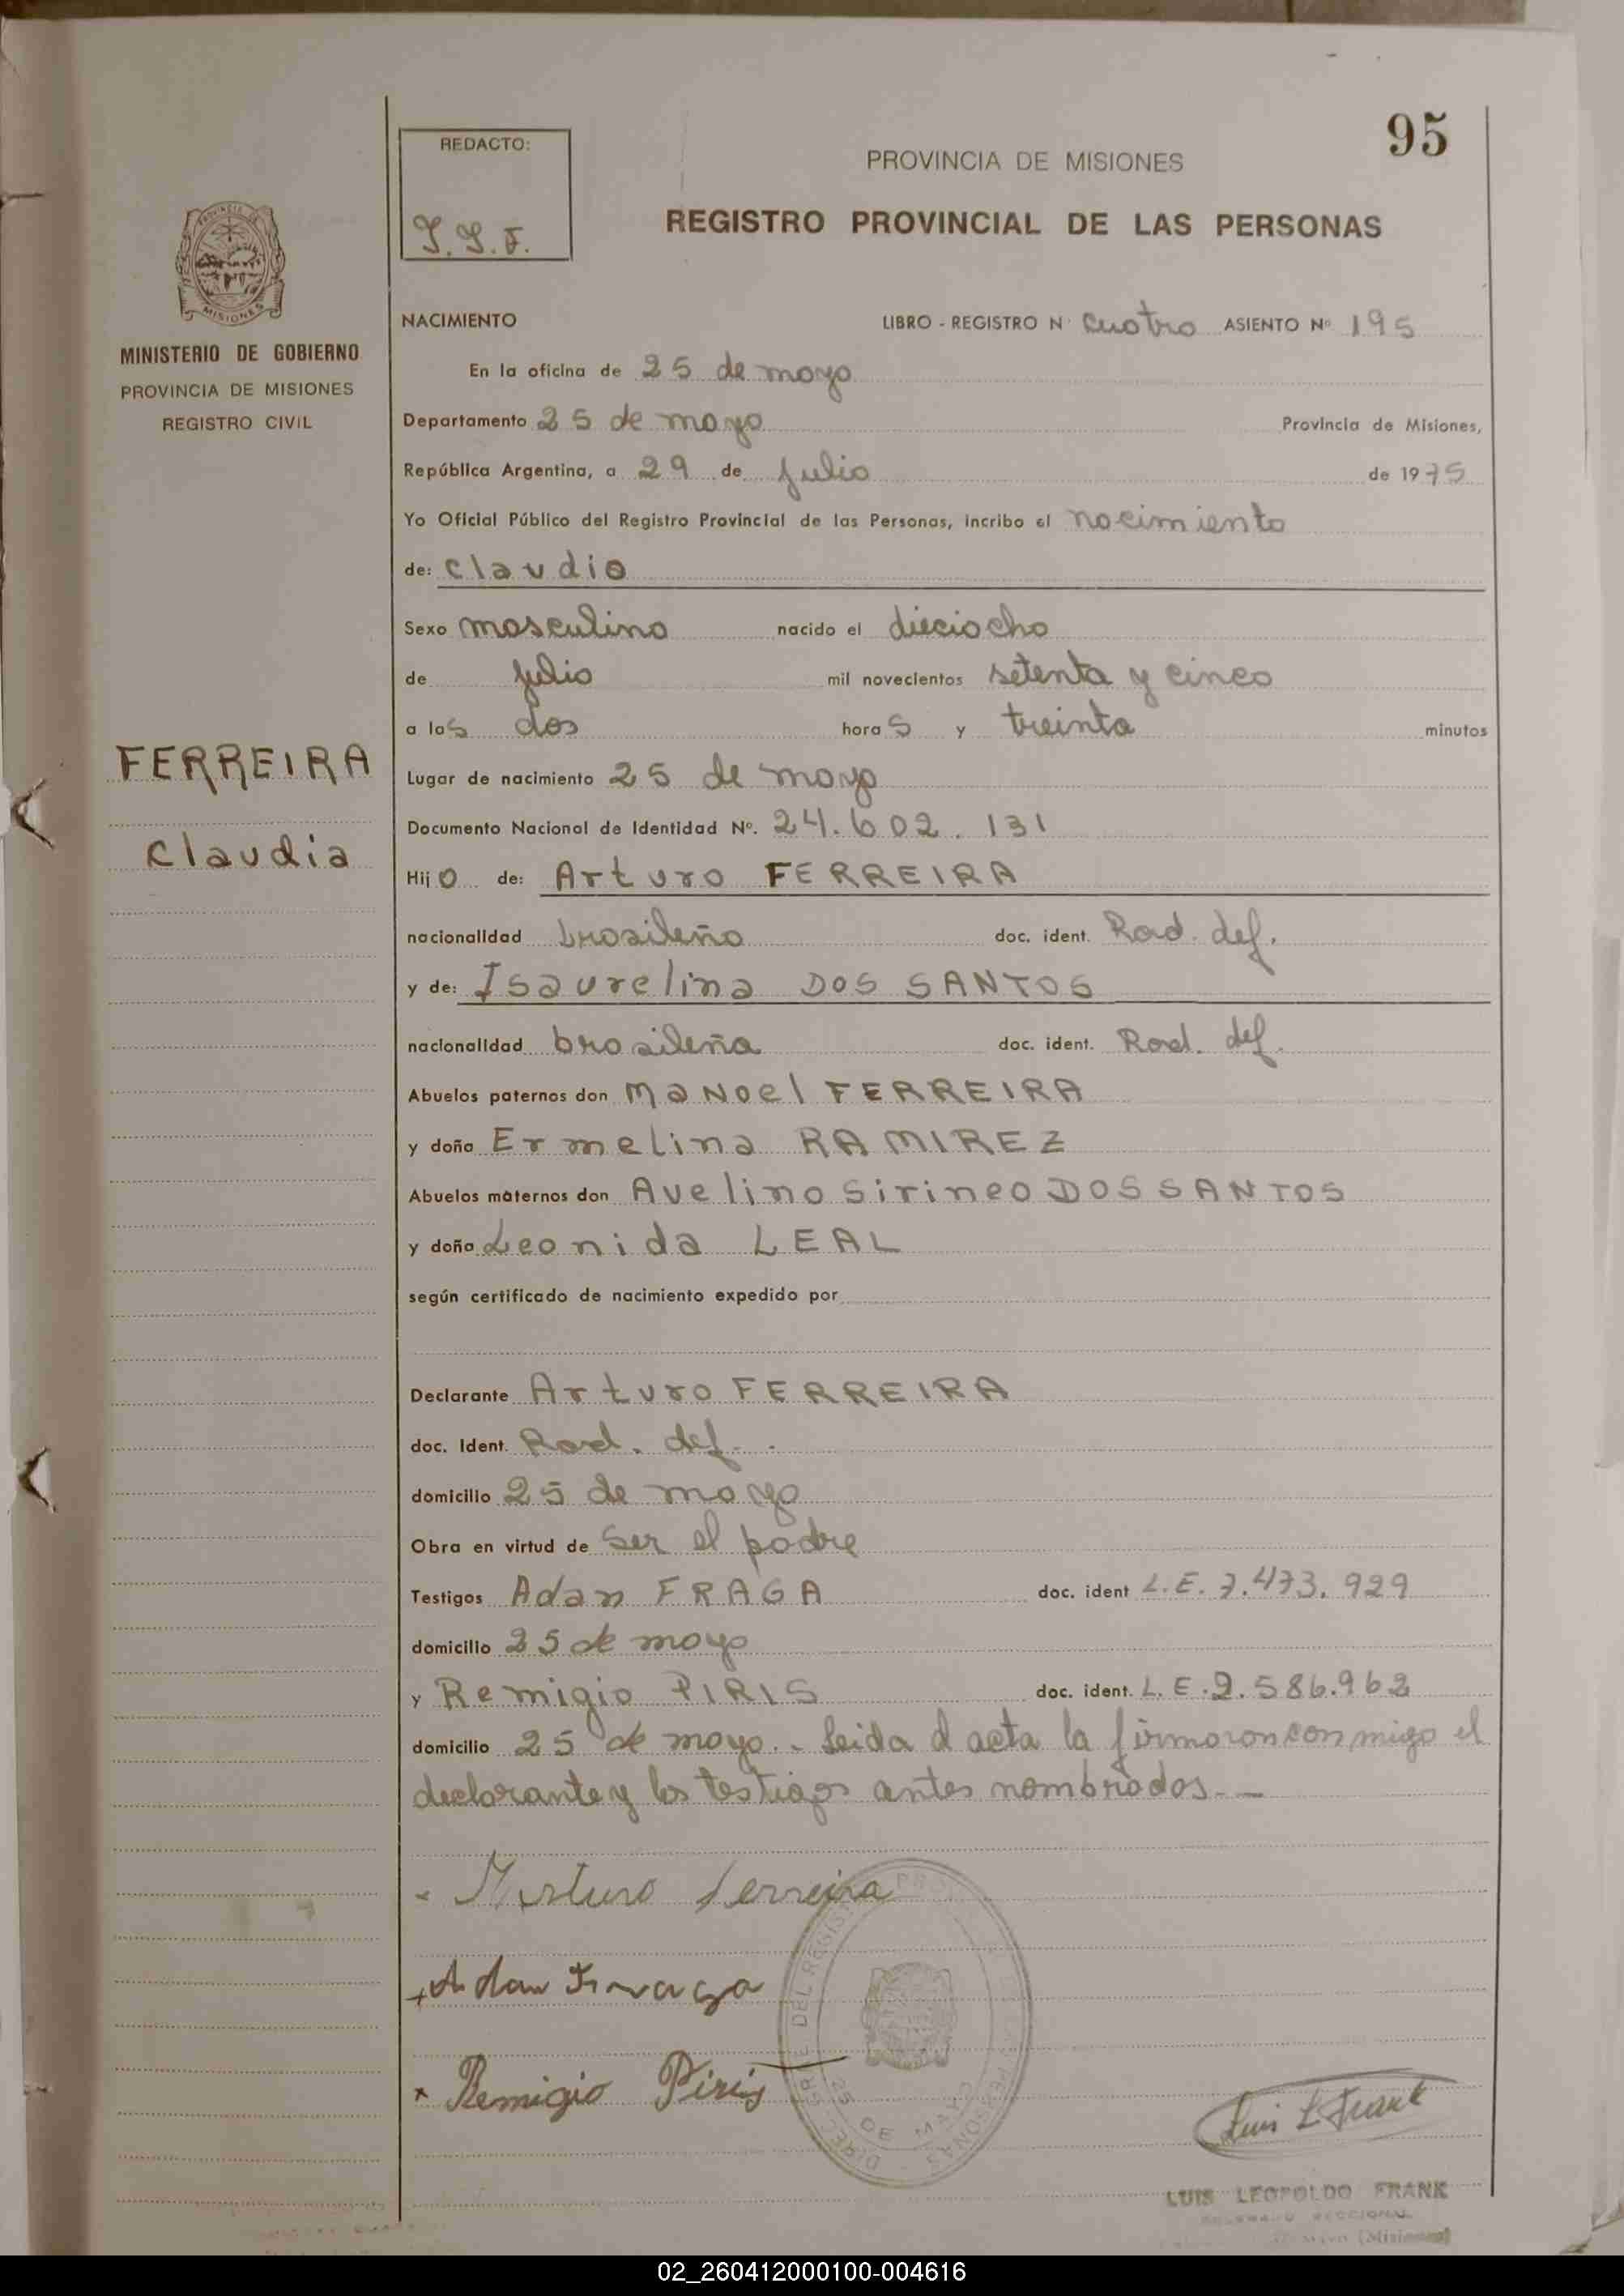 95
REDACTO:
PROVINCIA DE MISIONES
REGISTRO PROVINCIAL DE LAS PERSONAS
MISIONES
MINISTERIO DE GOBIERNO
PROVINCIA DE MISIONES
REGISTRO CIVIL
NACIMIENTO LIBRO - REGISTRO N° cuatro ASIENTO Nº 195
En la oficina de 25 de mayo
Departamento 25 de mayo Provincia de Misiones,
República Argentina, a 29 de julio de 1975
Yo Oficial Público del Registro Provincial de las Personas, incribo el nacimiento
de: claudio
Sexo masculino nacido el dieciocho
de julio mil novecientos setenta y cinco
a las dos horas y treinta minutos
FERREIRA
Lugar de nacimiento 25 de mayo
Documento Nacional de Identidad Nº. 24.602.131
claudia
Hijo de: Arturo FERREIRA
nacionalidad brasileño doc. ident. Rad. def.
y de: Isaurelina DOS SANTOS
nacionalidad brasileña doc. ident. Rad. def.
Abuelos paternos don Manoel FERREIRA
y doña Ermelina RAMIREZ
Abuelos maternos don Avelino Sirineo DOS SANTOS
y doña Leonida LEAL
según certificado de nacimiento expedido por
Declarante Arturo FERREIRA
doc. Ident. Rad. def.
domicilio 25 de mayo
Obra en virtud de ser el padre
Testigos Adan FRAGA doc. ident L.E. 7.473.929
domicilio 25 de mayo
y Remigio PIRIS doc. ident. L.E. 2.586.962
domicilio 25 de mayo.- Leida el acta la firmaron conmigo el
declarante y los testigos antes nombrados.-
Arturo Ferreira
Adan Fraga
Remigio Piris
25 DE MAYO
Luis L Frank
LUIS LEOPOLDO FRANK
(Misiones)
02_260412000100-004616